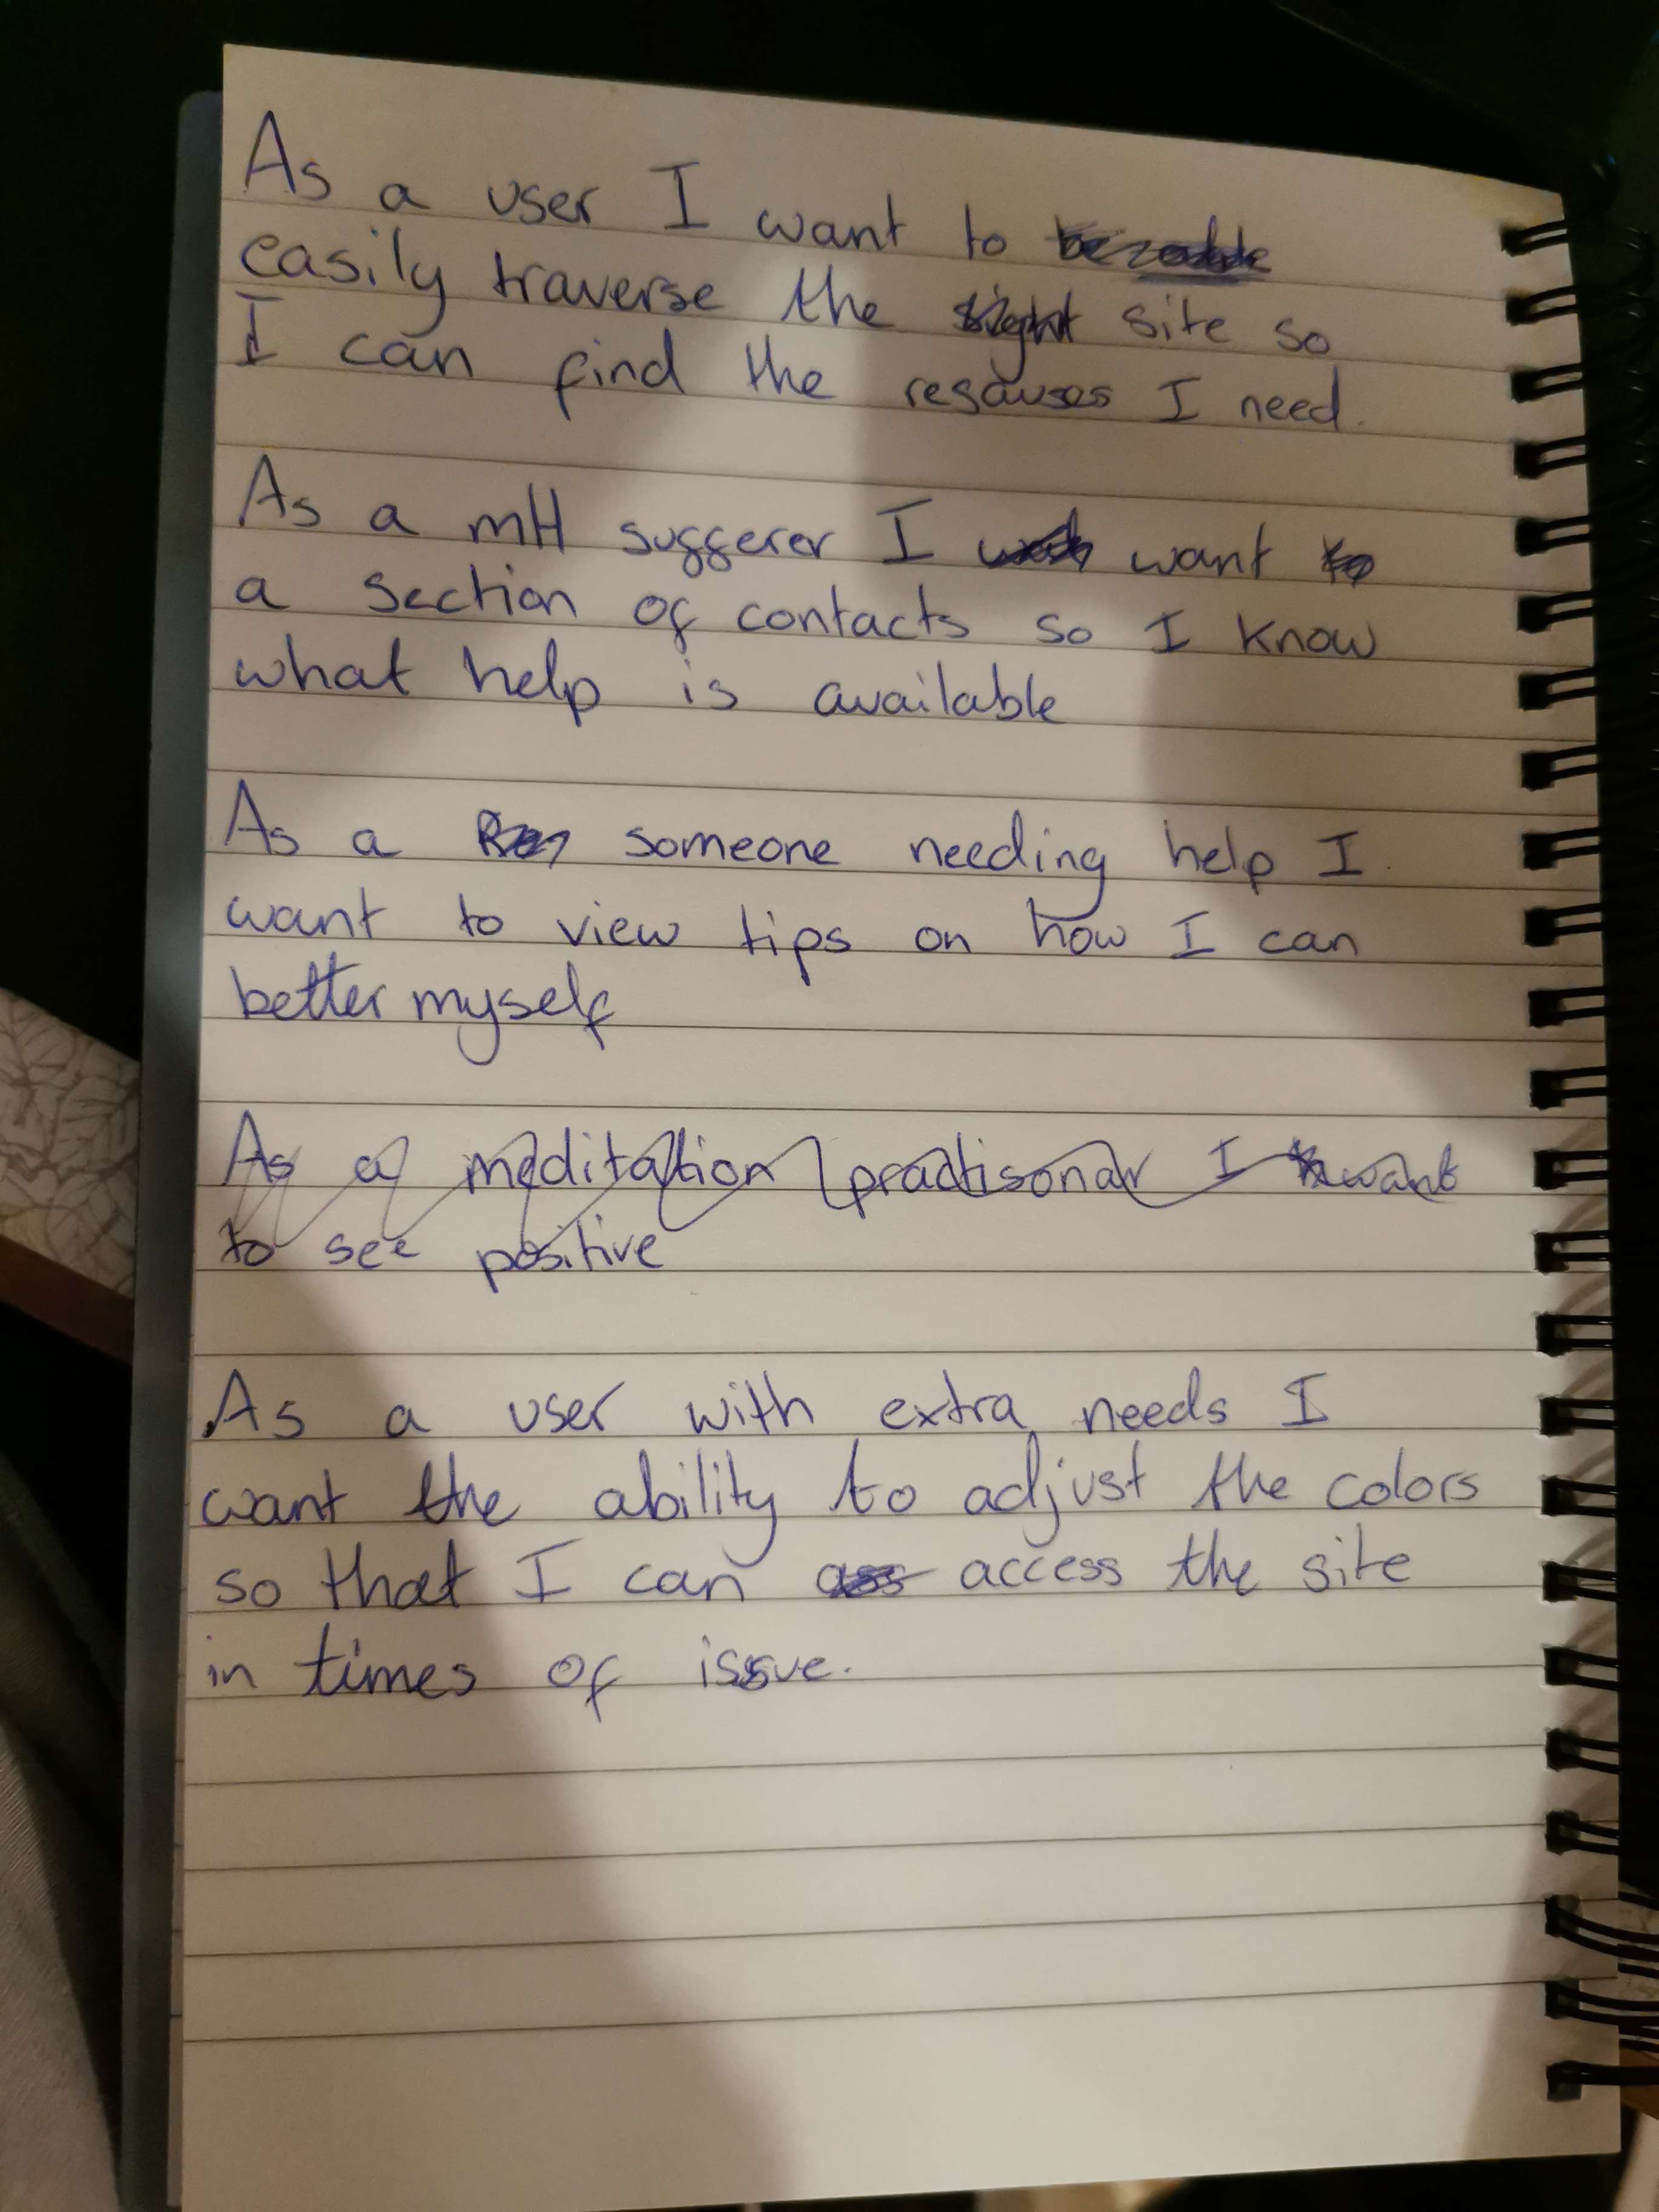 As a user I want to
easily traverse the site so
I can find the resauses I need.
As a mH sufferer I want
a section of contacts so I know
what help is available
As a someone needing help I
want to view tips on how I can
better myself
As a meditation practisonar I want
to see positive
As a user with extra needs I
want the ability to adjust the colors
so that I can access the site
in times of issue.